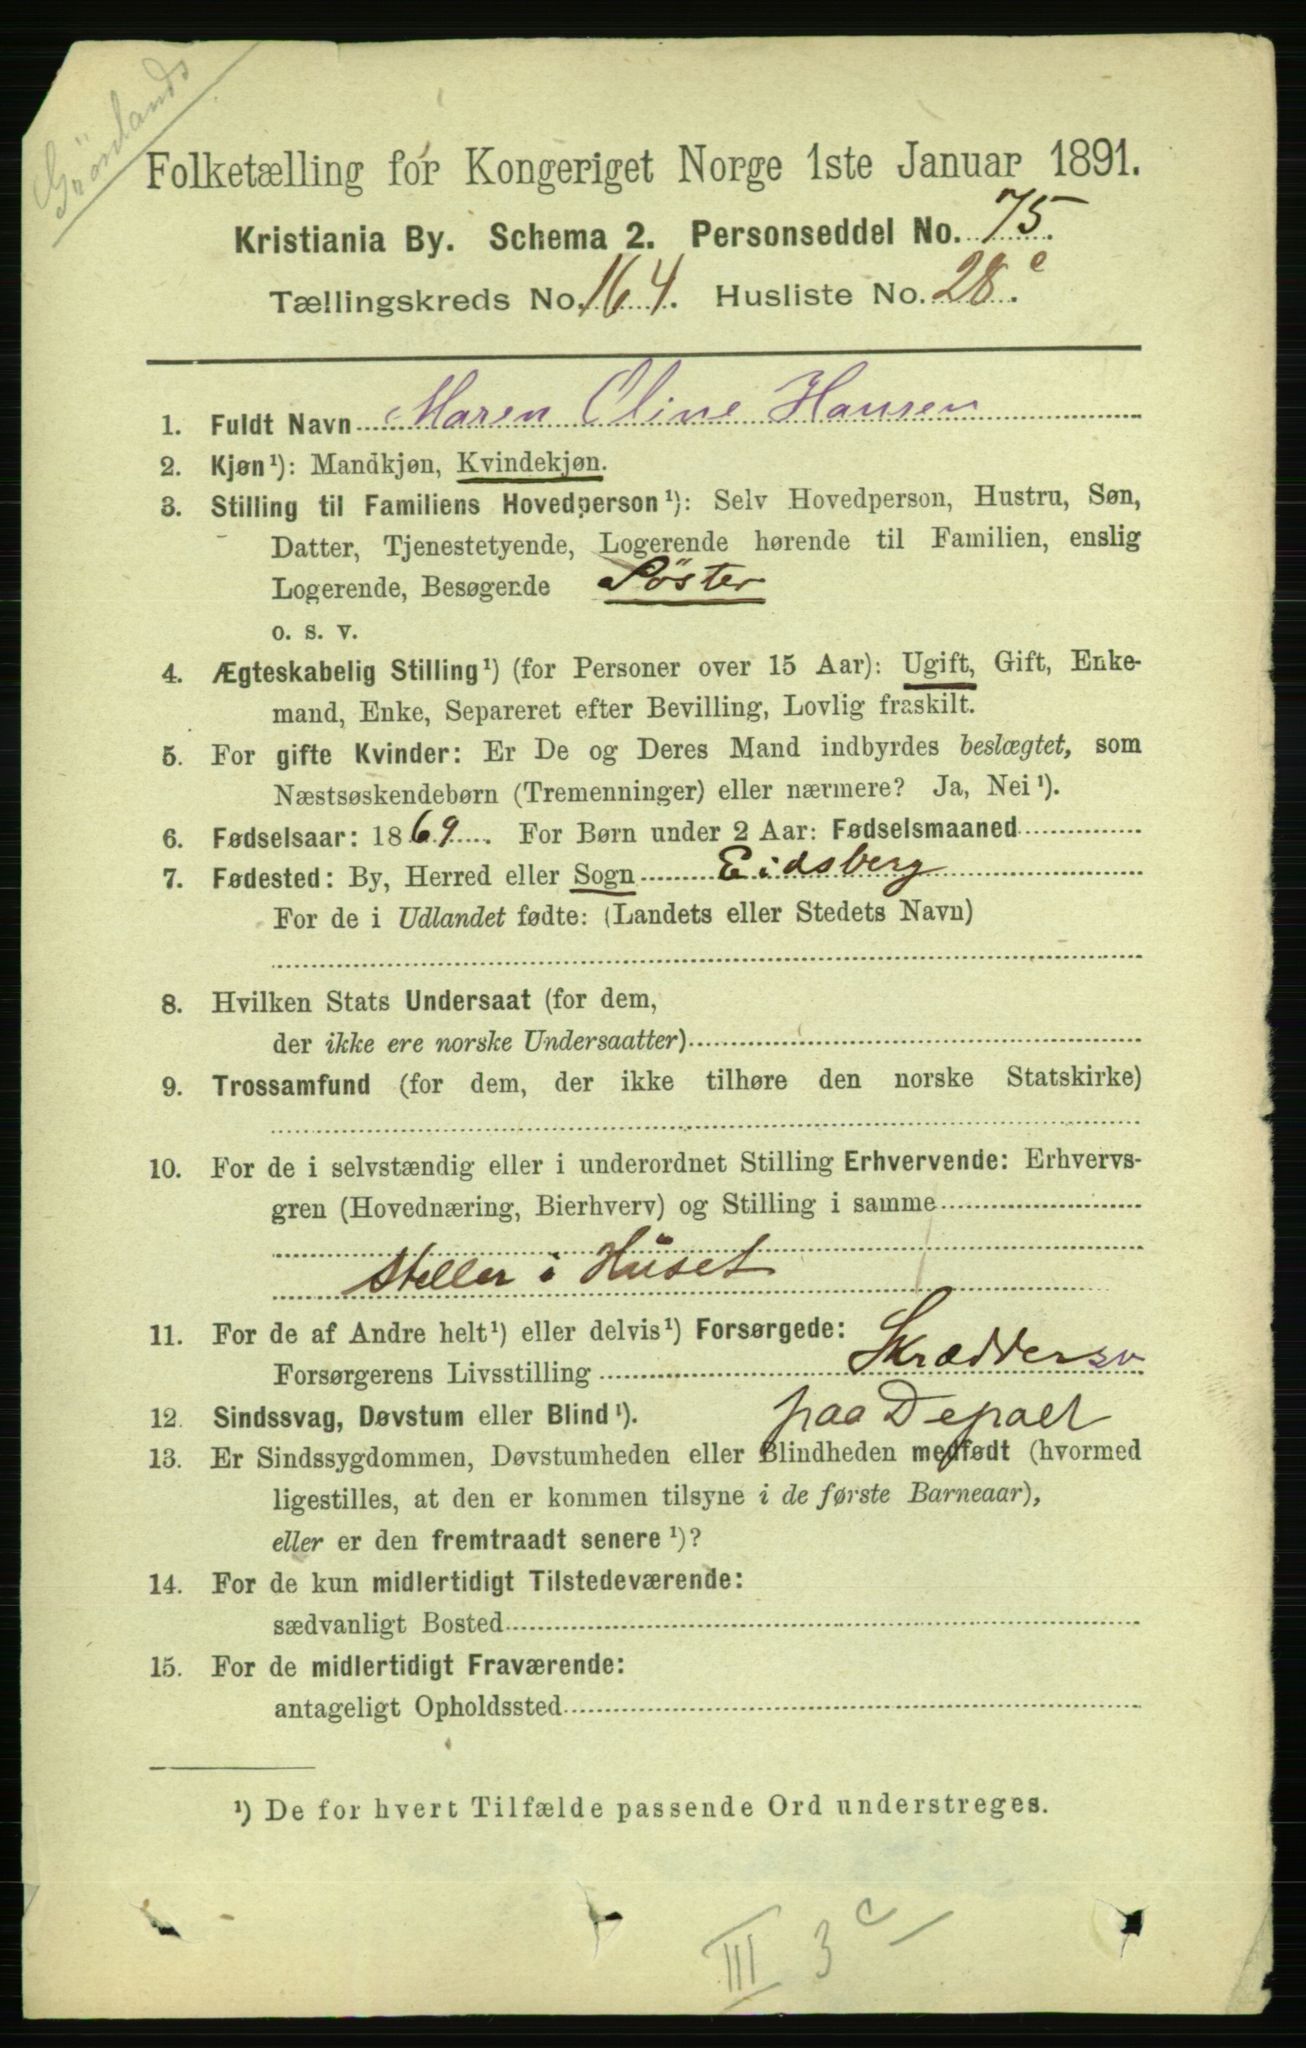 Grönlands
Folketælling for Kongeriget Norge 1ste Januar 1891.
Kristiania By. Schema 2. Personseddel No. 75.
Tællingskreds No. 164. Husliste No. 28 c.
1. Fuldt Navn Maren Oline Hansen
2. Kjøn¹): Mandkjøn, Kvindekjøn.
3. Stilling til Familiens Hovedperson¹): Selv Hovedperson, Hustru, Søn,
Datter, Tjenestetyende, Logerende hørende til Familien, enslig
Logerende, Besøgende Söster
o. s. v.
4. Ægteskabelig Stilling¹) (for Personer over 15 Aar): Ugift, Gift, Enke-
mand, Enke, Separeret efter Bevilling, Lovlig fraskilt.
5. For gifte Kvinder: Er De og Deres Mand indbyrdes beslægtet, som
Næstsøskendebørn (Tremenninger) eller nærmere? Ja, Nei¹).
6. Fødselsaar: 1869. For Børn under 2 Aar: Fødselsmaaned
7. Fødested: By, Herred eller Sogn Eidsberg
For de i Udlandet fødte: (Landets eller Stedets Navn)
8. Hvilken Stats Undersaat (for dem,
der ikke ere norske Undersaatter)
9. Trossamfund (for dem, der ikke tilhøre den norske Statskirke)
10. For de i selvstændig eller i underordnet Stilling Erhvervende: Erhvervs-
gren (Hovednæring, Bierhverv) og Stilling i samme
Steller i Huset
11. For de af Andre helt¹) eller delvis¹) Forsørgede:
Forsørgerens Livsstilling Skræddersv
paa Depoet
12. Sindssvag, Døvstum eller Blind¹).
13. Er Sindssygdommen, Døvstumheden eller Blindheden medfødt (hvormed
ligestilles, at den er kommen tilsyne i de første Barneaar),
eller er den fremtraadt senere¹)?
14. For de kun midlertidigt Tilstedeværende:
sædvanligt Bosted
15. For de midlertidigt Fraværende:
antageligt Opholdssted
¹) De for hvert Tilfælde passende Ord understreges.
III 3 c